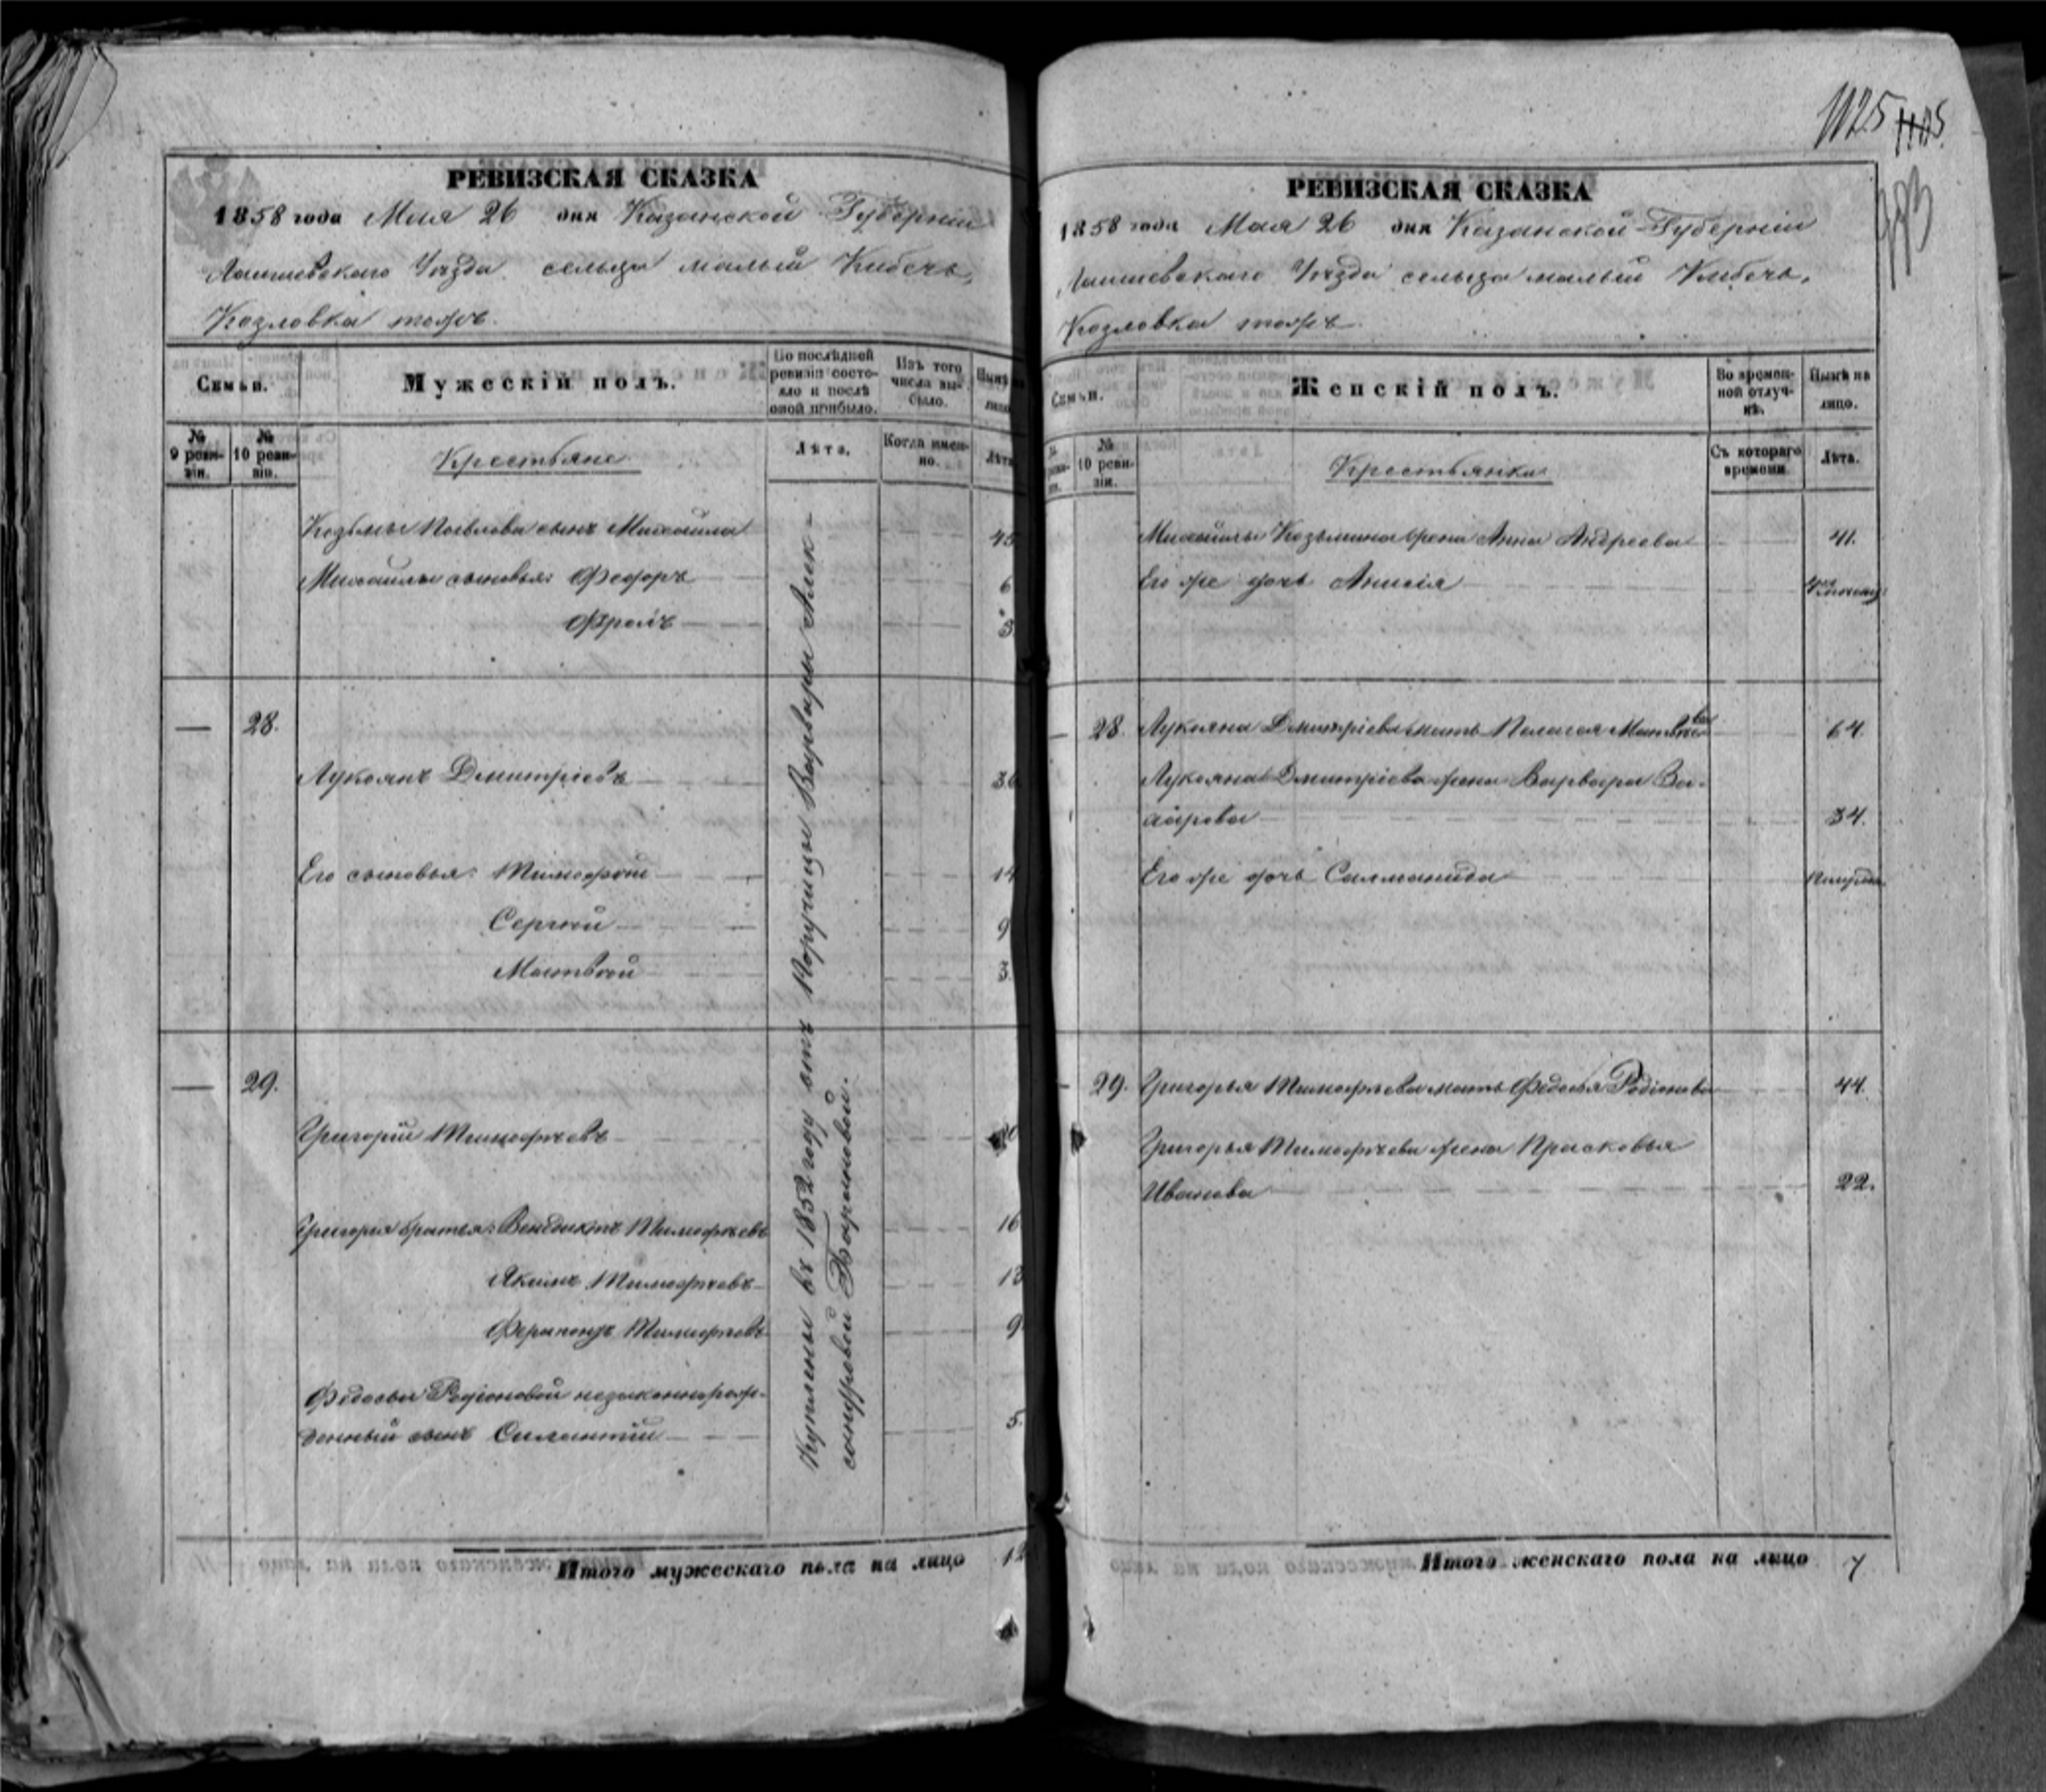 РЕВИЗСКАЯ СКАЗКА
1858 года Мая 26 дня Казанской Губерніи
Лаишевскаго Уѣзда сельца малый Кибечь,
Козловка тожъ.
Семьи.
Мужескій полъ.
По послѣдней ревизіи состояло и послѣ оной прибыло.
Изъ того числа выбыло.
Нынѣ на лицо
№ 9 ревизіи.
№ 10 ревизіи.
Крестьяне
Лѣта.
Когда именно.
Лѣта
Козьмы Павлова сынъ Михайла 45
Михайлы сыновья: Федоръ 6
Фролъ 3.
— 28.
Лукоянъ Дмитріевъ 36
Его сыновья: Тимофѣй 14
Сергѣй 9
Матвѣй 3.
— 29.
Григорій Тимофѣевъ
Григорія братья: Венедиктъ Тимофѣевъ 16
Якимъ Тимофѣевъ 13
Ферапонтъ Тимофѣевъ 9
Федосьи Родіоновой незаконнорож-
денный сынъ Силантій 5.
Куплены въ 1852 году отъ Поручицы Варвары Алек-
сандровой
Итого мужескаго пола на лицо 12
1125 1105.
РЕВИЗСКАЯ СКАЗКА
1858 года Мая 26 дня Казанской Губерніи
Лаишевскаго Уѣзда сельца малый Кибечь,
Козловка тожъ
Семьи.
Женскій полъ.
Во временной отлучкѣ.
Нынѣ на лицо.
10 ревизіи.
Крестьянки
Съ котораго времени.
Лѣта.
Михайлы Козьмина жена Анна Андреева 41.
Его же дочь Анисія
— 28. Лукояна Дмитріева мать Пелагея Матвѣева 64.
Лукояна Дмитріева жена Варвара За-
харова 34.
Его же дочь Саломанида
— 29. Григорья Тимофѣева мать Федосья Родіонова 44.
Григорья Тимофѣева жена Прасковья
Иванова 22.
Итого женскаго пола на лицо 7